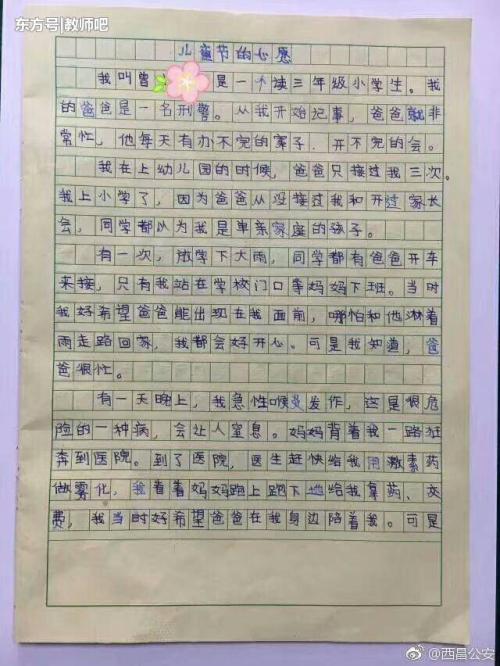 东方号|教师吧
儿童节的心愿
我叫曾 是一个读三年级小学生。我
的爸爸是一名刑警。从我开始记事，爸爸就非
常忙，他每天有办不完的案子，开不完的会。
我在上幼儿园的时候，爸爸只接过我三次。
我上小学了，因为爸爸从没接过我和开过家长
会，同学都以为我是单亲家庭的孩子。
有一次，放学下大雨，同学都有爸爸开车
来接，只有我站在学校门口等妈妈下班。当时
我好希望爸爸能出现在我面前，哪怕和他淋着
雨走路回家，我都会好开心。可是我知道，爸
爸很忙。
有一天晚上，我急性喉炎发作，这是很危
险的一种病，会让人窒息。妈妈背着我一路狂
奔到医院。到了医院，医生赶快给我用激素药
做雾化，我看着妈妈跑上跑下地给我拿药、交
费，我当时好希望爸爸在我身边陪着我。可是
@西昌公安